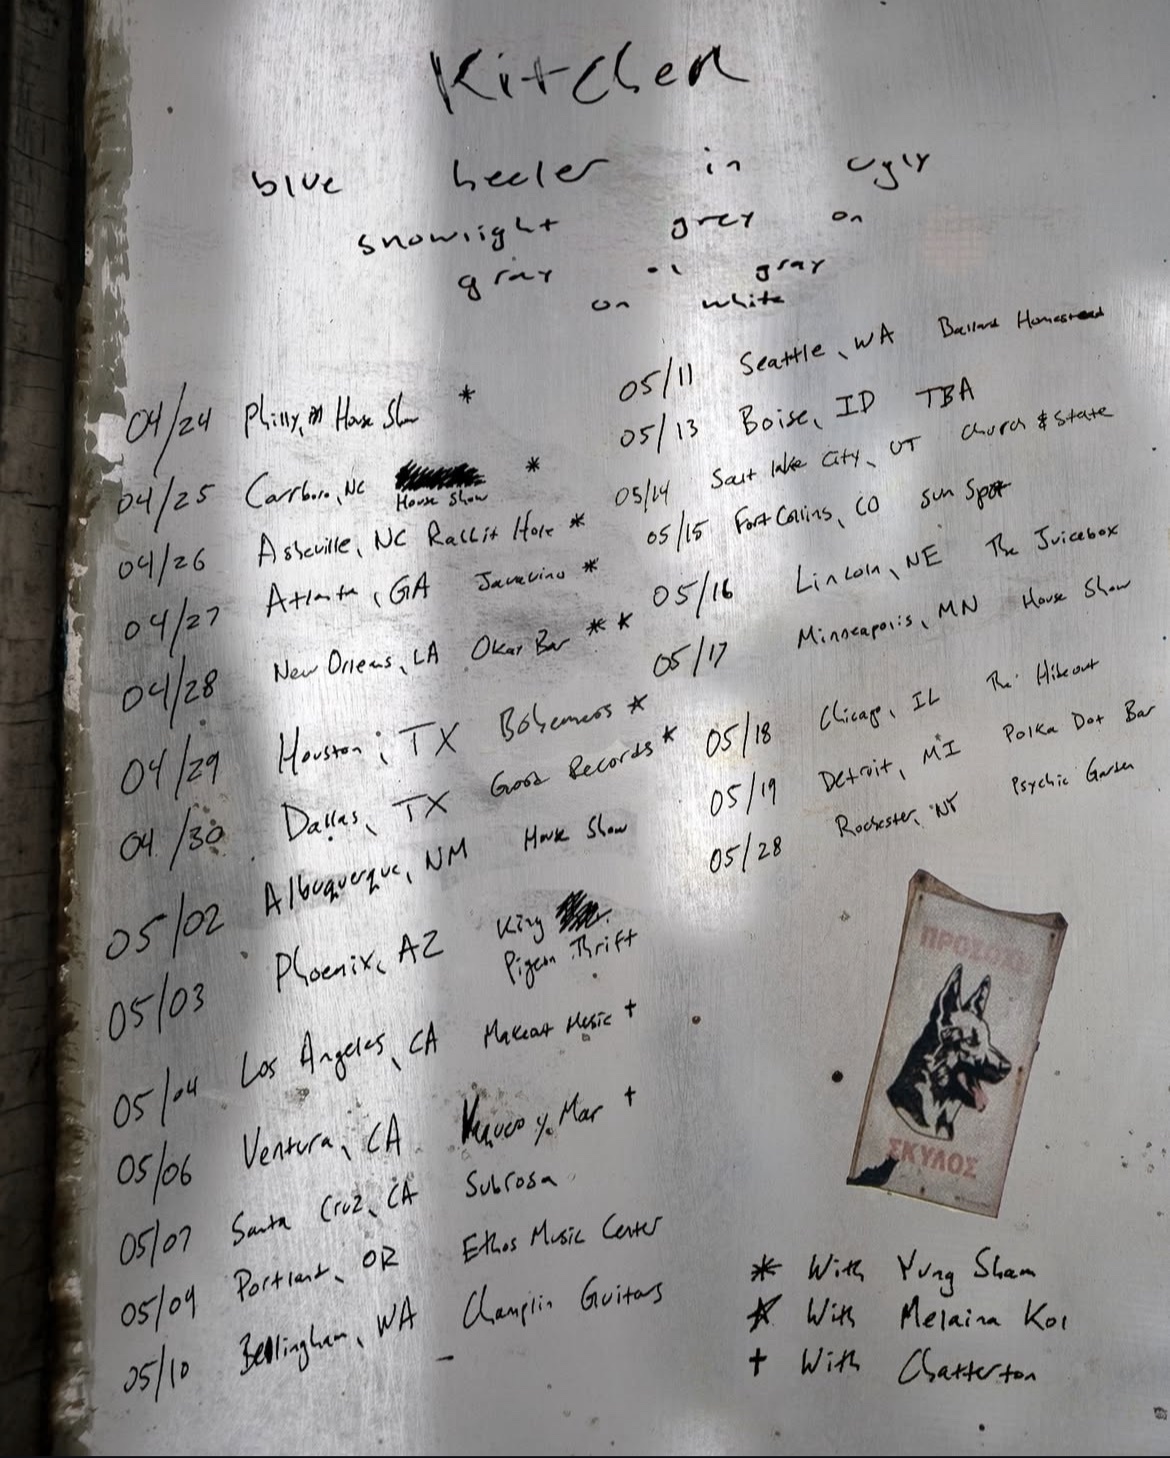 Kitchen
blue heeler in ugly
snowlight grey on
gray on gray
on white
04/24 Philly, House Show *
04/25 Carrboro, NC House Show *
04/26 Asheville, NC Rabbit Hole *
04/27 Atlanta, GA Javavino *
04/28 New Orleans, LA Okay Bar * ★
04/29 Houston, TX Bohemeos ★
04/30 Dallas, TX Good Records ★
05/02 Albuquerque, NM House Show
05/03 Phoenix, AZ King
Pigeon Thrift
05/04 Los Angeles, CA Makeout Music †
05/06 Ventura, CA y Mar †
05/07 Santa Cruz, CA Subrosa
05/09 Portland, OR Ethos Music Center
05/10 Bellingham, WA Champlin Guitars
05/11 Seattle, WA Ballard Homestead
05/13 Boise, ID TBA
05/14 Salt lake City, UT Church & State
05/15 Fort Collins, CO Sun Spot
05/16 Lincoln, NE The Juicebox
05/17 Minneapolis, MN House Show
05/18 Chicago, IL The Hideout
05/19 Detroit, MI Polka Dot Bar
05/28 Rochester, NY Psychic Garden
ΠΡΟΣΟΧΗ
ΣΚΥΛΟΣ
* With Yung Sham
★ With Melaina Kol
† With Chatterton